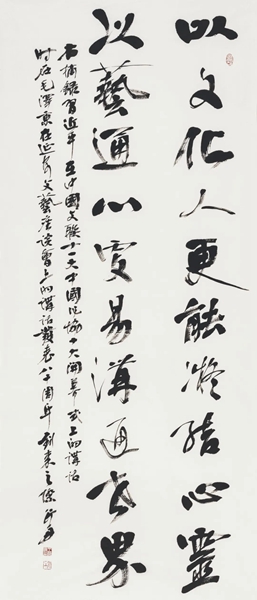 以文化人更能凝结心靈
以藝通心更易溝通世界
右摘錄習近平在中國文聯十一大中國作協十大開幕式上的講話
时在毛澤東在延安文藝座談會上的講話發表八十周年